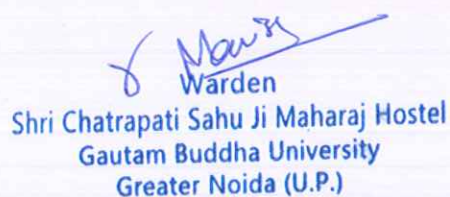 Warden
Shri Chatrapati Sahu Ji Maharaj Hostel
Gautam Buddha University
Greater Noida (U.P.)